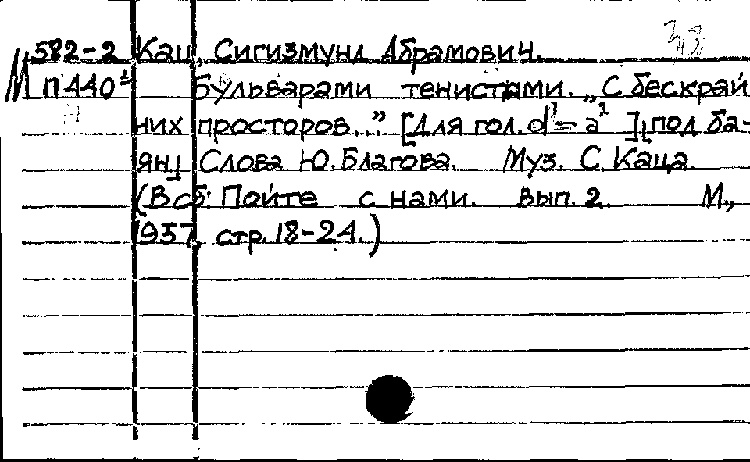 582-2 Кац, Сигизмунд Абрамович.
М П440¹ Бульварами тенистыми. „С бескрай-
них просторов..." [Для гол. d¹-a¹], под ба-
ян] Слова Ю. Благова. Муз. С. Каца.
(В сб: Пойте с нами. Вып. 2. М.,
1957, стр. 18-24.)